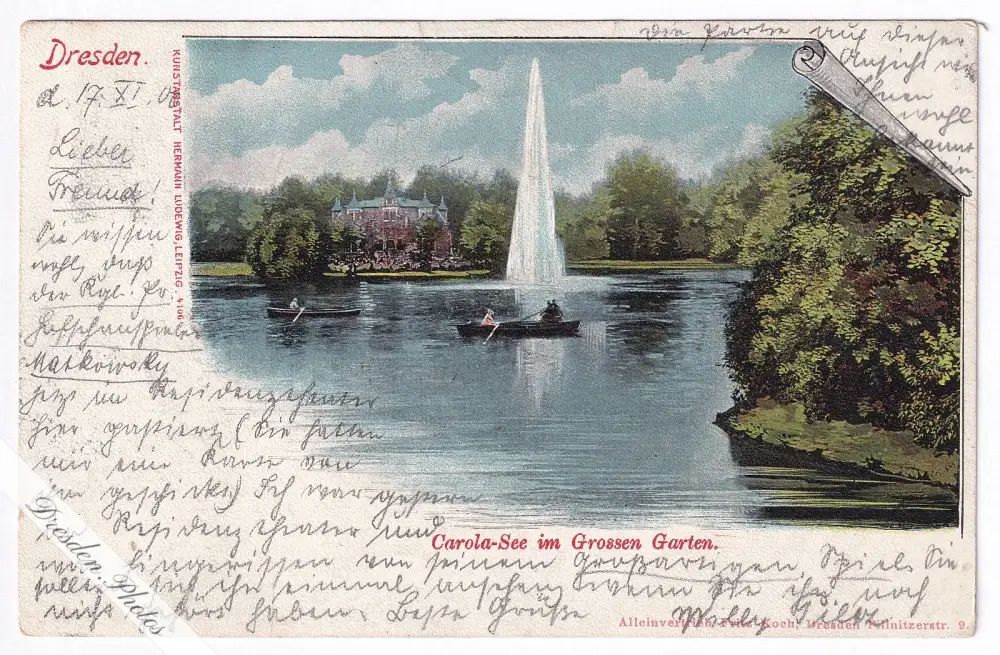 Dresden.
d. 17. XI. 05
Die Partie auf dieser
Ansicht wird
Ihnen
wohl
bekannt
sein
KUNSTANSTALT HERMANN LUDEWIG, LEIPZIG. 4106
Lieber
Freund!
Sie wissen
wohl, daß
der Kgl. Pr.
Hofschauspieler
Matkowsky
jetzt im Residenztheater
hier gastiert, (Sie hatten
mir eine Karte von
ihm geschickt) Ich war gestern
Residenztheater und
hingerissen von seinem Großartigen Spiel. Sie
sollten sich ihn einmal ansehen, wenn Sie ihn noch
nicht haben. Beste Grüße
Willy
Carola-See im Grossen Garten.
Alleinvertrieb Fritz Koch, Dresden Pillnitzerstr. 9.
Dresden.Photos